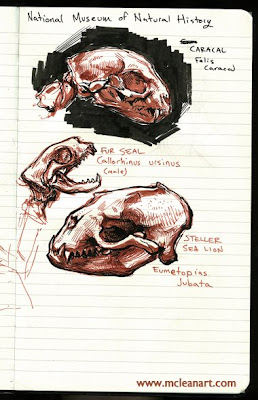 National Museum of Natural History
CARACAL
Felis
Caracal
FUR SEAL
Callorhinus ursinus
(male)
STELLER
SEA LION
Eumetopias
Jubata
www.mcleanart.com